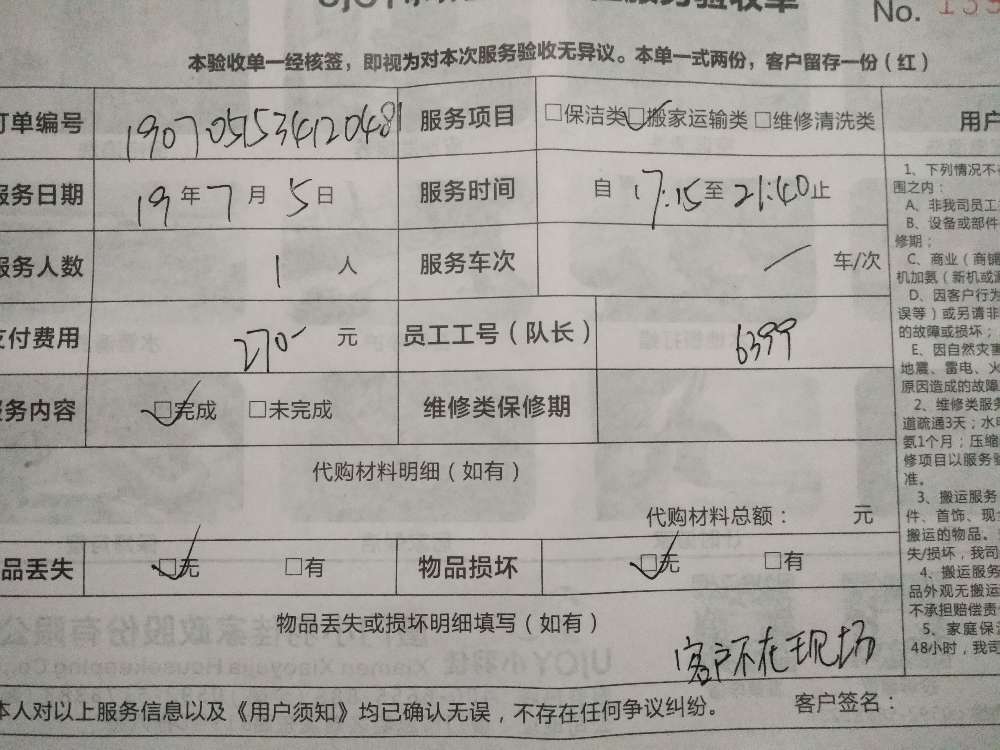 服务验收单
No. 139
本验收单一经核签，即视为对本次服务验收无异议。本单一式两份，客户留存一份（红）
订单编号 190705153412048 服务项目 □保洁类 ☑搬家运输类 □维修清洗类
服务日期 19年7月5日 服务时间 自17:15至21:40止
服务人数 1人 服务车次 / 车/次
支付费用 270- 元 员工工号（队长） 6399
服务内容 ☑完成 □未完成 维修类保修期
代购材料明细（如有）
代购材料总额： 元
品丢失 ☑无 □有 物品损坏 ☑无 □有
物品丢失或损坏明细填写（如有）
客户不在现场
本人对以上服务信息以及《用户须知》均已确认无误，不存在任何争议纠纷。 客户签名：
用户
1、下列情况不
围之内：
A、非我司员工
B、设备或部件
修期；
C、商业（商铺
机加氨（新机或
D、因客户行为
误等）或另请非
的故障或损坏；
E、因自然灾害
地震、雷电、火
原因造成的故障
2、维修类服务
道疏通3天；水电
氨1个月；压缩
修项目以服务验
准。
3、搬运服务
件、首饰、现金
搬运的物品。
失/损坏，我司
4、搬运服务
品外观无搬运
不承担赔偿责
5、家庭保洁
48小时，我司